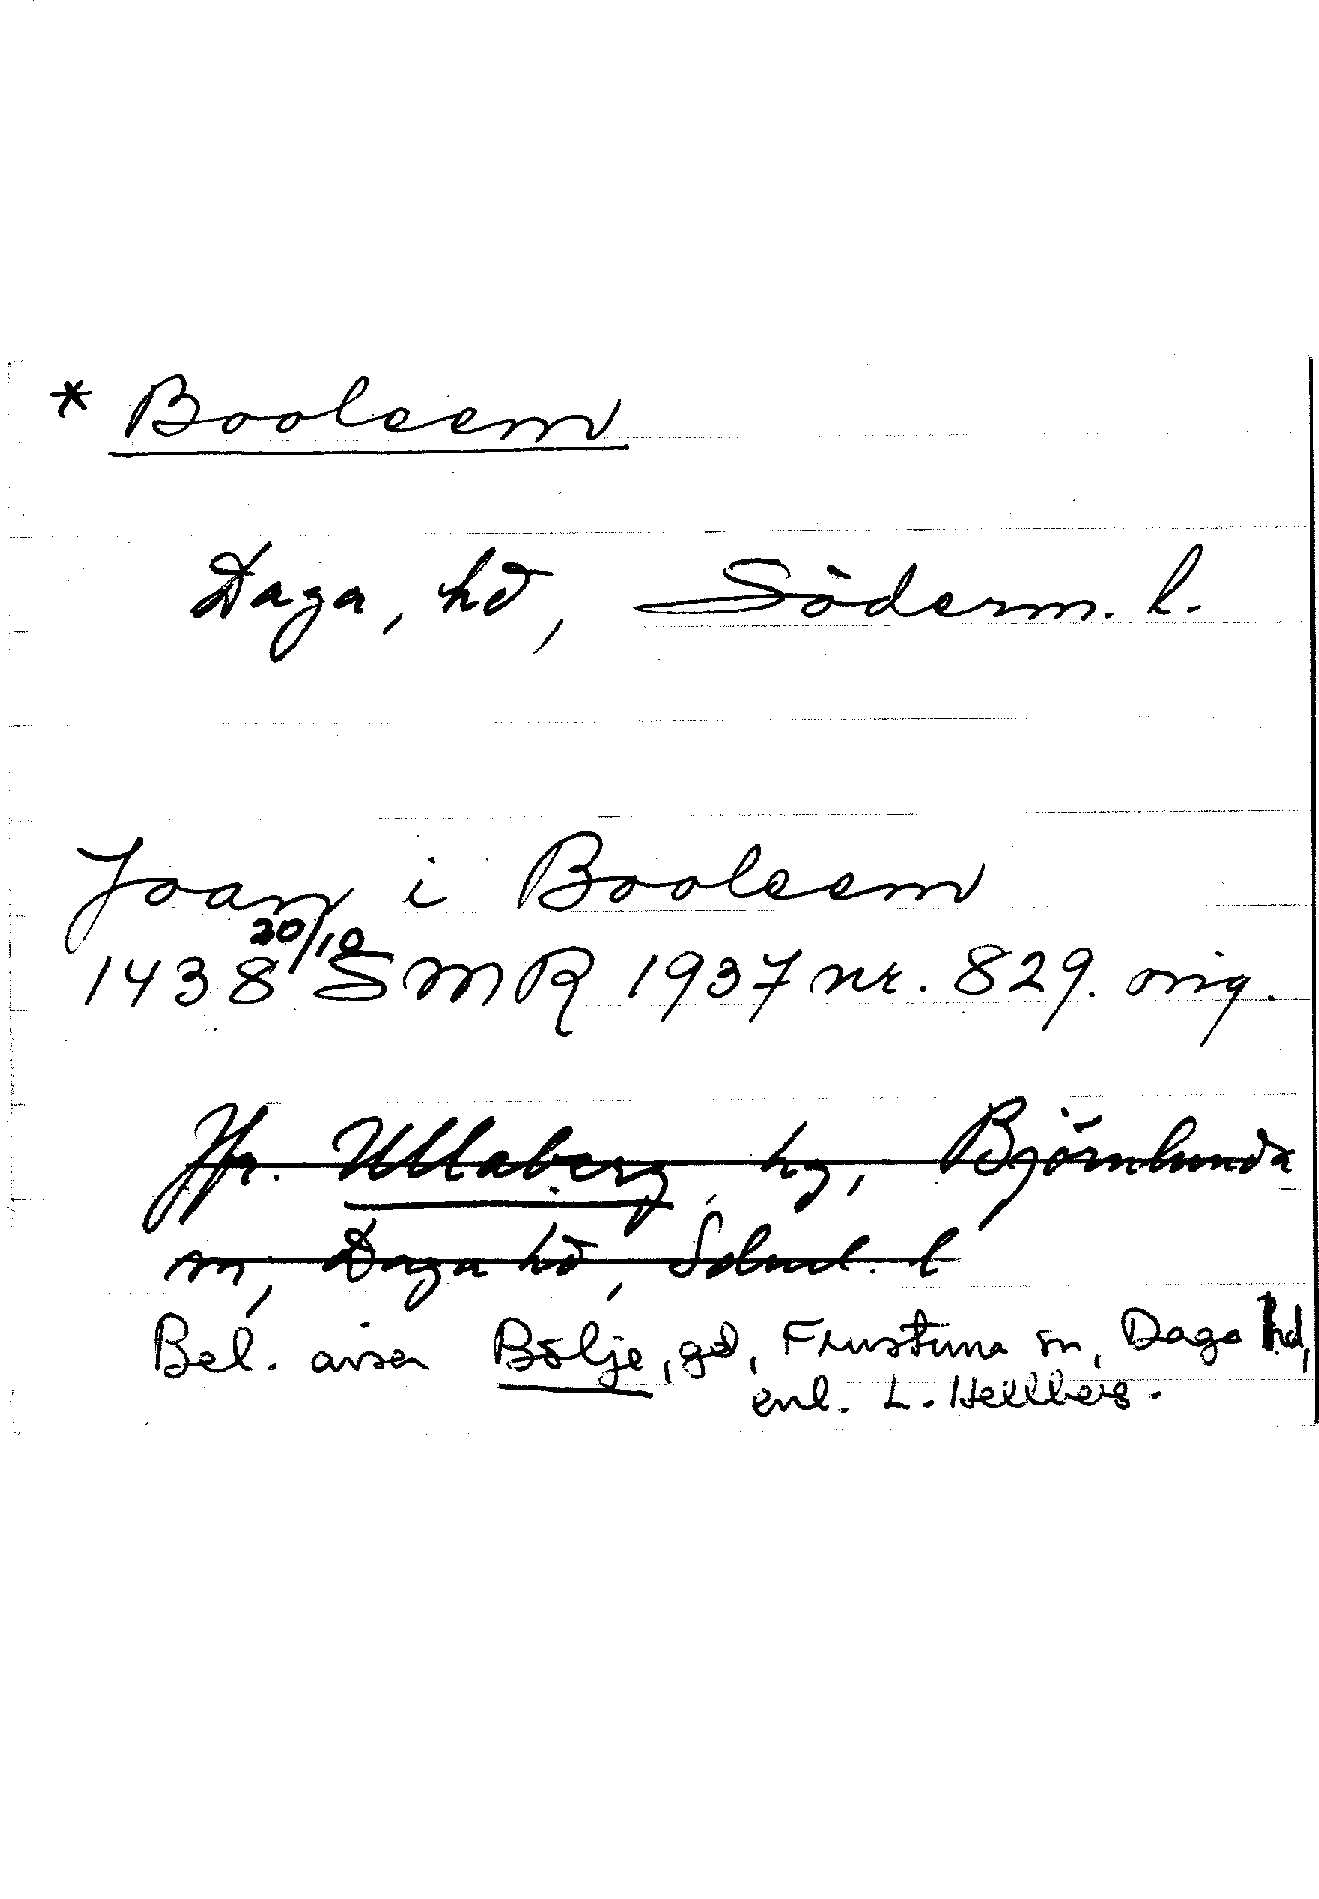 * Booleem
Daga, hd, Söderm. l.
Joan i Booleem
1438 20/10 SMR 1937 nr. 829. orig.
Jfr. Ullaberg, hg, Björnlunda
sn, Daga hd, Söderml. l
Bel. avser Bölje, gd, Frustuna sn, Daga hd,
enl. L. Hellberg.